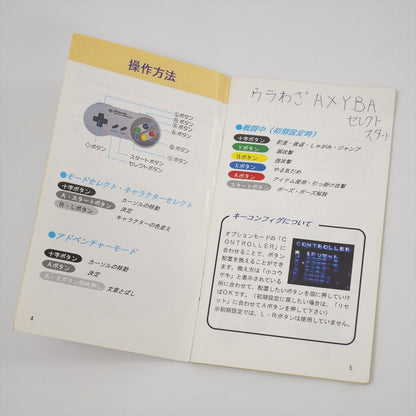 操作方法
Lボタン
Rボタン
Xボタン
スタートボタン
セレクトボタン
●モードセレクト・キャラクターセレクト
十字ボタン カーソルの移動
A・スタートボタン 決定
R・Lボタン キャラクターの色変え
●アドベンチャーモード
十字ボタン カーソルの移動
Aボタン 決定
文章とばし
4
ウラわざ AXYBA
セレクト
スタート
●戦闘中(初期設定時)
十字ボタン 前進・後退・しゃがみ・ジャンプ
Yボタン 弱攻撃
Bボタン 強攻撃
Xボタン やる気だめ
Aボタン アイテム使用・引っ掛け攻撃
スタートボタン ポーズ・ポーズ解除
キーコンフィグについて
オプションモードの「C
ONTROLLER」に
合わせることで、ボタン
配置を換えることができ
ます。換え方は「小コウ
ゲキ」と表示されている
所に合わせて、配置したいボタンを順に押していけ
ばOKです。(初期設定に戻したい場合は、「リセ
ット」に合わせてAボタンを押して下さい)
※初期設定では、L・Rボタンは使用していません。
CONTROLLER
5